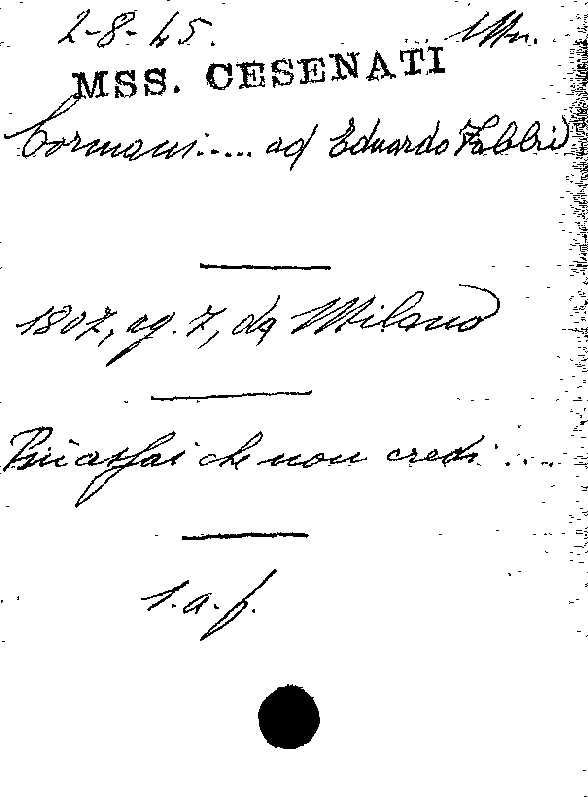 2-8-45.
MSS. CESENATI
Cormani..... ad Eduardo Fabbri
1807, ag. 7, da Milano
Più assai che non credi ....
1. a. f.